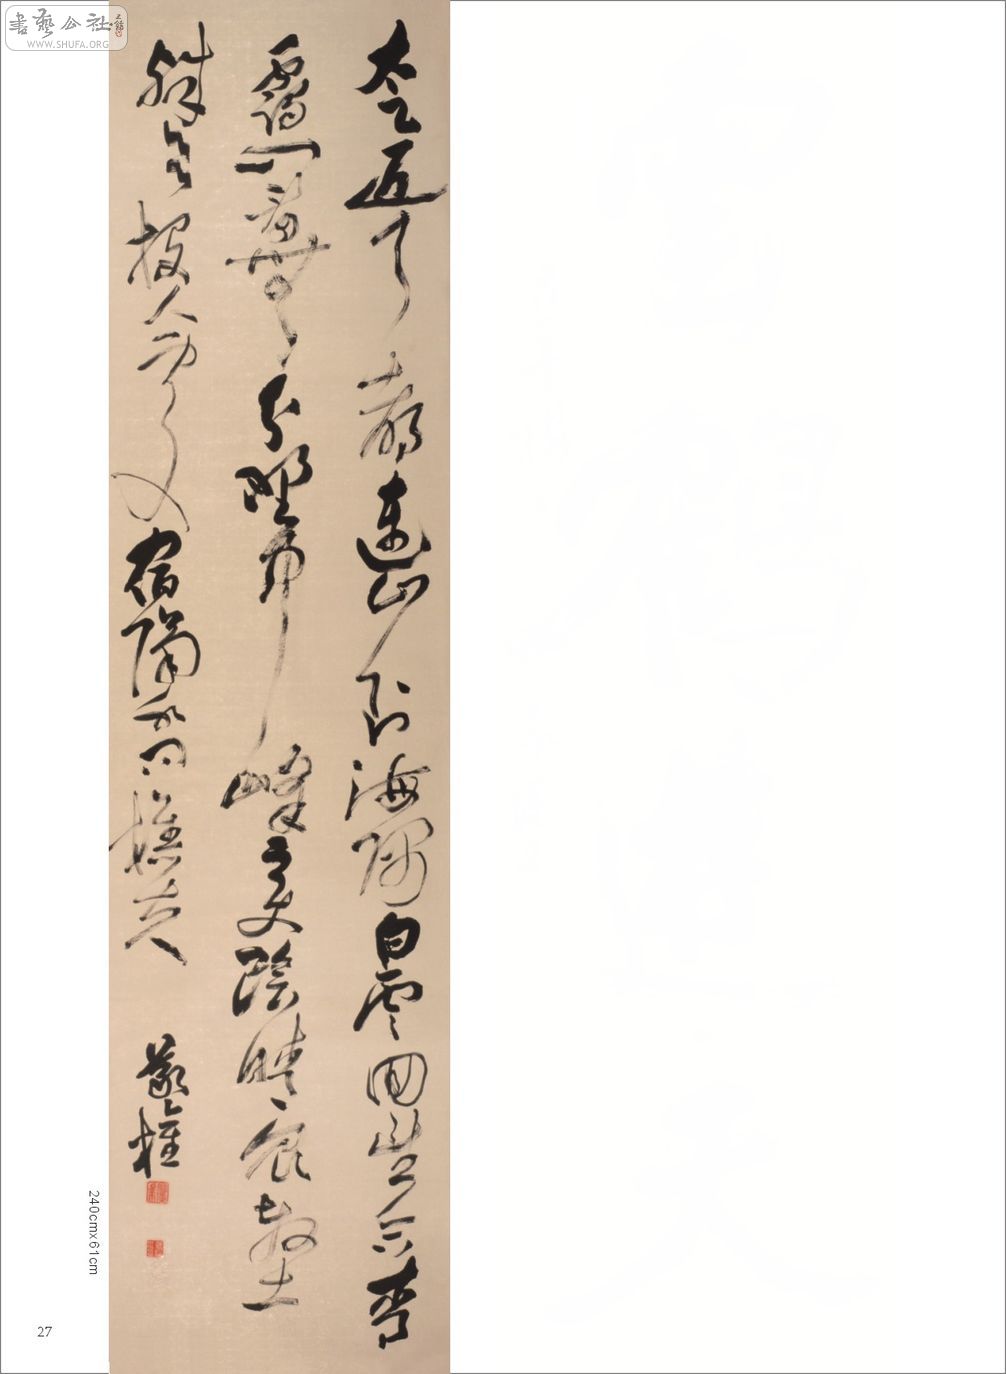 書藝公社
WWW.SHUFA.ORG
太乙近天都連山到海隅白雲回望合青
靄入看無分野中峰變陰晴眾壑
殊欲投人處宿隔水問樵夫
240cmx61cm
27